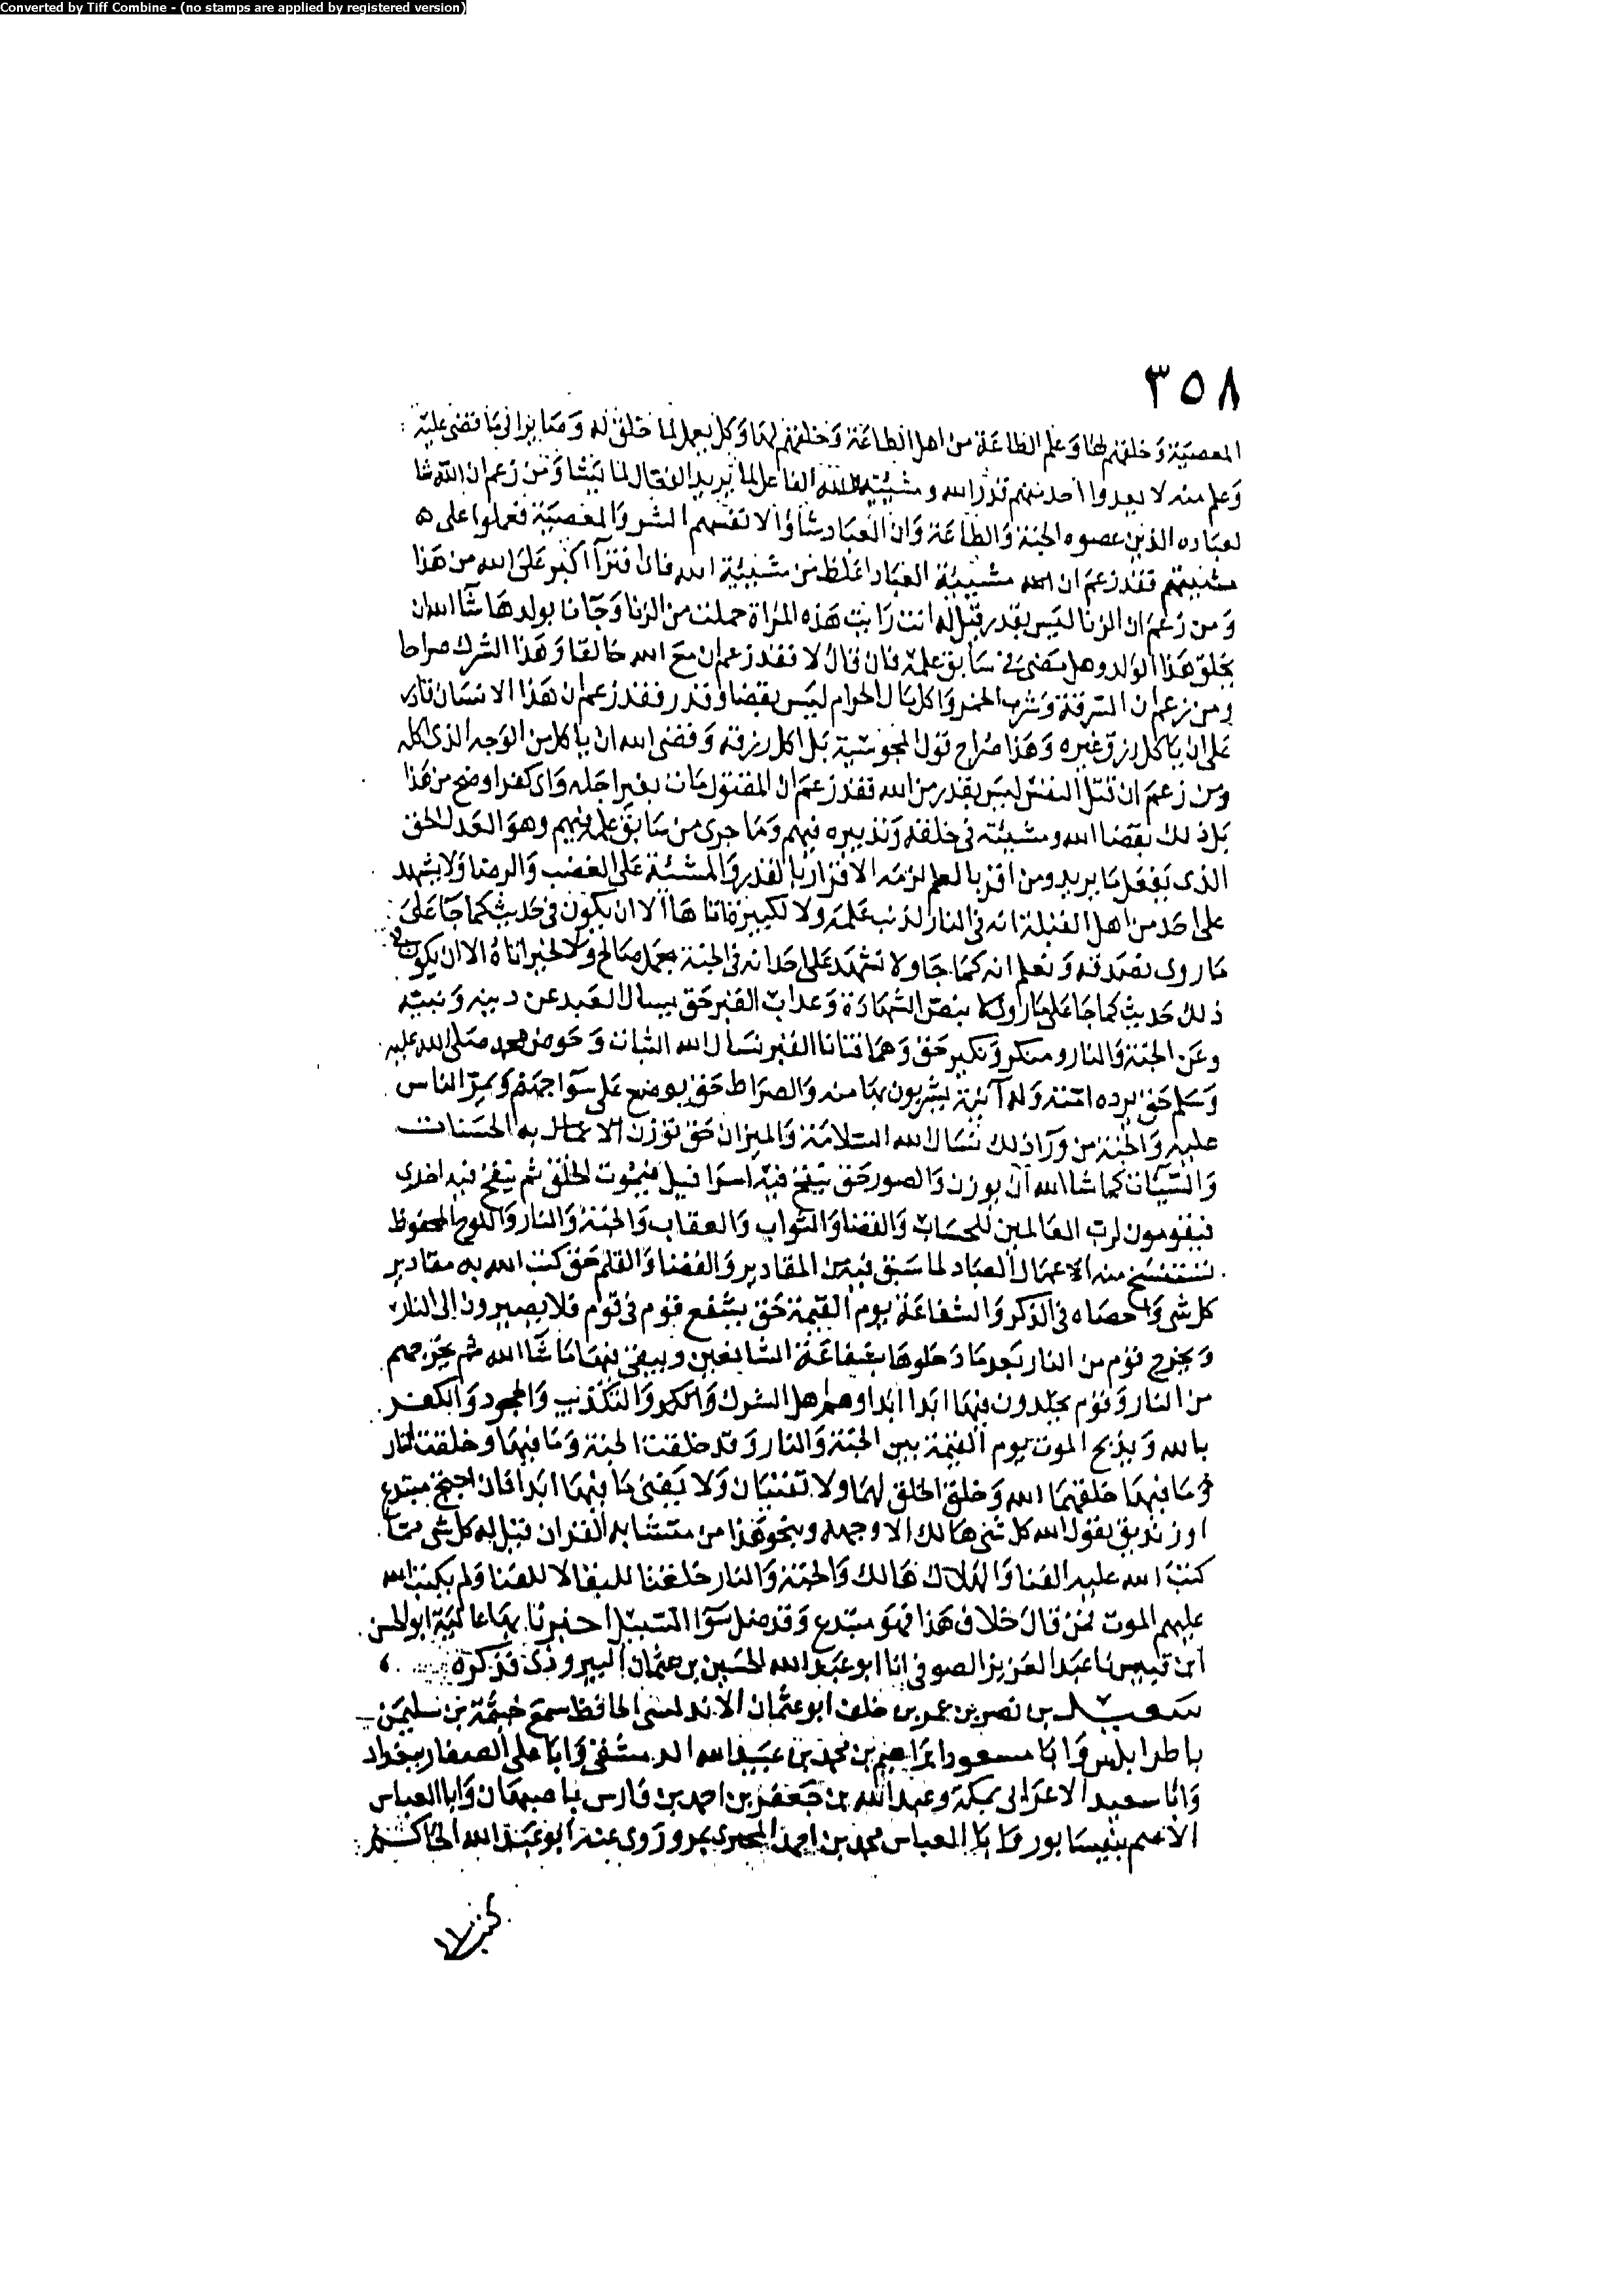 Converted by Tiff Combine - (no stamps are applied by registered version)
٣٥٨
المعصية وخلقهم لها وعلم الطاعة من اهل الطاعة وخلقهم لها وكل يعمل لما خلق له وصاير الى ما قضى عليه
وعلم منه لا يعدوا احد منهم قدر الله ومشيئته الله الفاعل لما يريد الفعال لما يشا ومن زعم ان الله شا
لعباده الذين عصوه الجنة والطاعة وان العباد شاؤا لانفسهم الشر والمعصية فعملوا على
مشيتهم فقد زعم ان مشيئة العباد اغلظ من مشيئة الله فاى افتراء اكبر على الله من هذا
ومن زعم ان الزنا ليس بقدر قيل له انت رايت هذه المراة حملت من الزنا وجات بولد هل شا الله ان
يخلق هذا الولد وهل مضى فى سابق علمه فان قال لا فقد زعم ان مع الله خالقا وهذا الشرك صراحا
ومن زعم ان السرقة وشرب الخمر واكل مال الحرام ليس بقضا وقدر فقد زعم ان هذا الانسان قادر
على ان ياكل رزق غيره وهذا صراح قول المجوسية بل اكل رزقه وقضى الله ان ياكل من الوجه الذى اكله
ومن زعم ان قتل النفس ليس بقدر من الله فقد زعم ان المقتول مات بغير اجله واى كفر اوضح من هذا
بل ذلك بقضا الله ومشيئته فى خلقه وتدبيره فيهم وما جرى من سابق علمه فيهم وهو العدل الحق
الذى يفعل ما يريد ومن اقر بالعلم لزمه الاقرار بالقدر والمشئة على الغضب والرضا ولا يشهد
على احد من اهل القبلة انه فى النار لذنب عمله ولا لكبيرة اتاها الا ان يكون فى حديث كما جا على
ما روى نصدقه ونعلم انه كما جا ولا نشهد على احد انه فى الجنة بعمل صالح ولا لخير اتاه الا ان يكون فى
ذلك حديث كما جا على ما روى لا بنص الشهادة وعذاب القبر حق يسال العبد عن دينه ونبيه
وعن الجنة والنار ومنكر ونكير حق وهما فتانا القبر نسال الله الثبات وحوض محمد صلى الله عليه
وسلم حق يرده امته وله آنية يشربون بها منه والصراط حق يوضع على سوا جهنم ويمر الناس
عليه والجنة من ورا ذلك نسال الله السلامة والميزان حق توزن الاعمال به الحسنات
والسيات كما شا الله ان يوزن والصور حق ينفخ فيه اسرافيل فيموت الخلق ثم ينفخ فيه اخرى
فيقومون لرب العالمين للحساب والقضا والثواب والعقاب والجنة والنار واللوح المحفوظ
تستنسخ منه الاعمال العباد لما سبق فيه من المقادير والقضا والقلم حق كتب الله به مقادير
كل شى واحصاه فى الذكر والشفاعة يوم القيمة حق يشفع قوم فى قوم فلا يصيرون الى النار
ويخرج قوم من النار بعد ما دخلوها بشفاعة الشافعين ويبقى فيها ما شا الله ثم يخرجهم
من النار وقوم يخلدون فيها ابدا ابدا وهم اهل الشرك والتكذيب والجحود والكفر
بالله ويذبح الموت يوم القيمة بين الجنة والنار وقد خلقت الجنة وما فيها وخلقت النار
وما فيها خلقهما الله وخلق الخلق لهما ولا تفنيان ولا يفنى ما فيهما ابدا فان احتج مبتدع
او زنديق بقول الله كل شى هالك الا وجهه وبنحو هذا من متشابه القران قيل له كل شى مما
كتب الله عليه الفنا والهلاك هالك والجنة والنار خلقتا للبقا لا للفنا ولم يكتب الله
عليهم الموت فمن قال خلاف هذا فهو مبتدع وقد ضل سوا السبيل اخبرنا بها عالية ابو الحسن
ابن قبيس نا عبد العزيز الصوفى انا ابو عبد الله الحسين بن عثمان اليبرودى فذكره
سعيد بن نصر بن عمر بن خلف ابو عثمان الاندلسى الحافظ سمع خيثمة بن سليمن
باطرابلس وابا مسعود ابراهيم بن محمد بن عبيد الله الدمشقى وابا على الصفار ببغداد
وابا سعيد الاعرابى بمكة وعبد الله بن جعفر بن احمد بن فارس باصبهان وابا العباس
الاصم بنيسابور وابا العباس محمد بن احمد بمرو روى عنه ابو عبد الله الحاكم